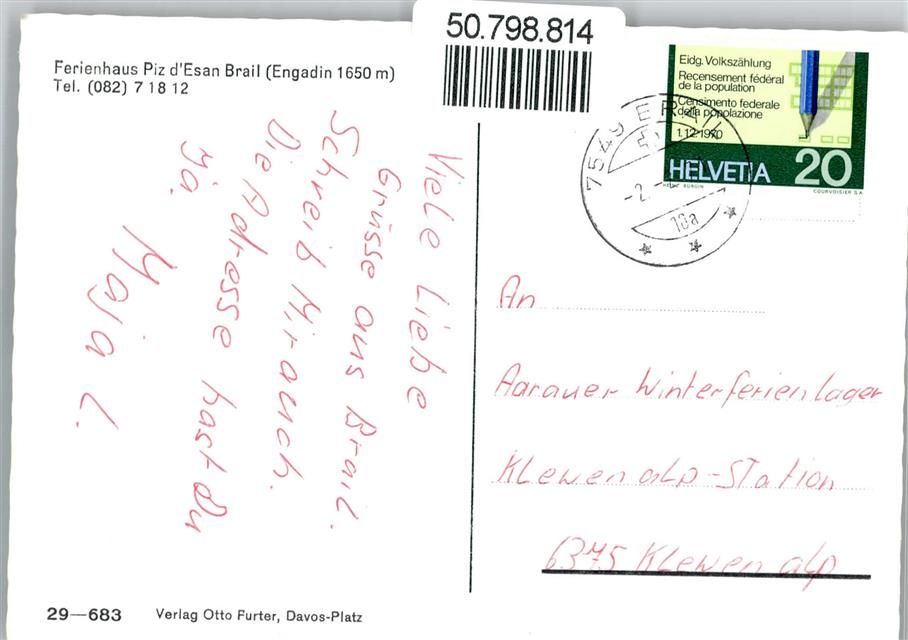 50.798.814
Ferienhaus Piz d'Esan Brail (Engadin 1650 m)
Tel. (082) 7 18 12
Viele Liebe
Grüsse aus Brail.
Schreib Mir auch.
Die Adresse hast Du
ja.
Maja L.
29—683
Verlag Otto Furter, Davos-Platz
Eidg. Volkszählung
Recensement fédéral
de la population
Censimento federale
della popolazione
1.12.1970
HELVETIA 20
COURVOISIER S A
7549 BRAIL
-2.
18a
An
Aarauer Winterferienlager
Klewenalp-Station
6375 Klewenalp